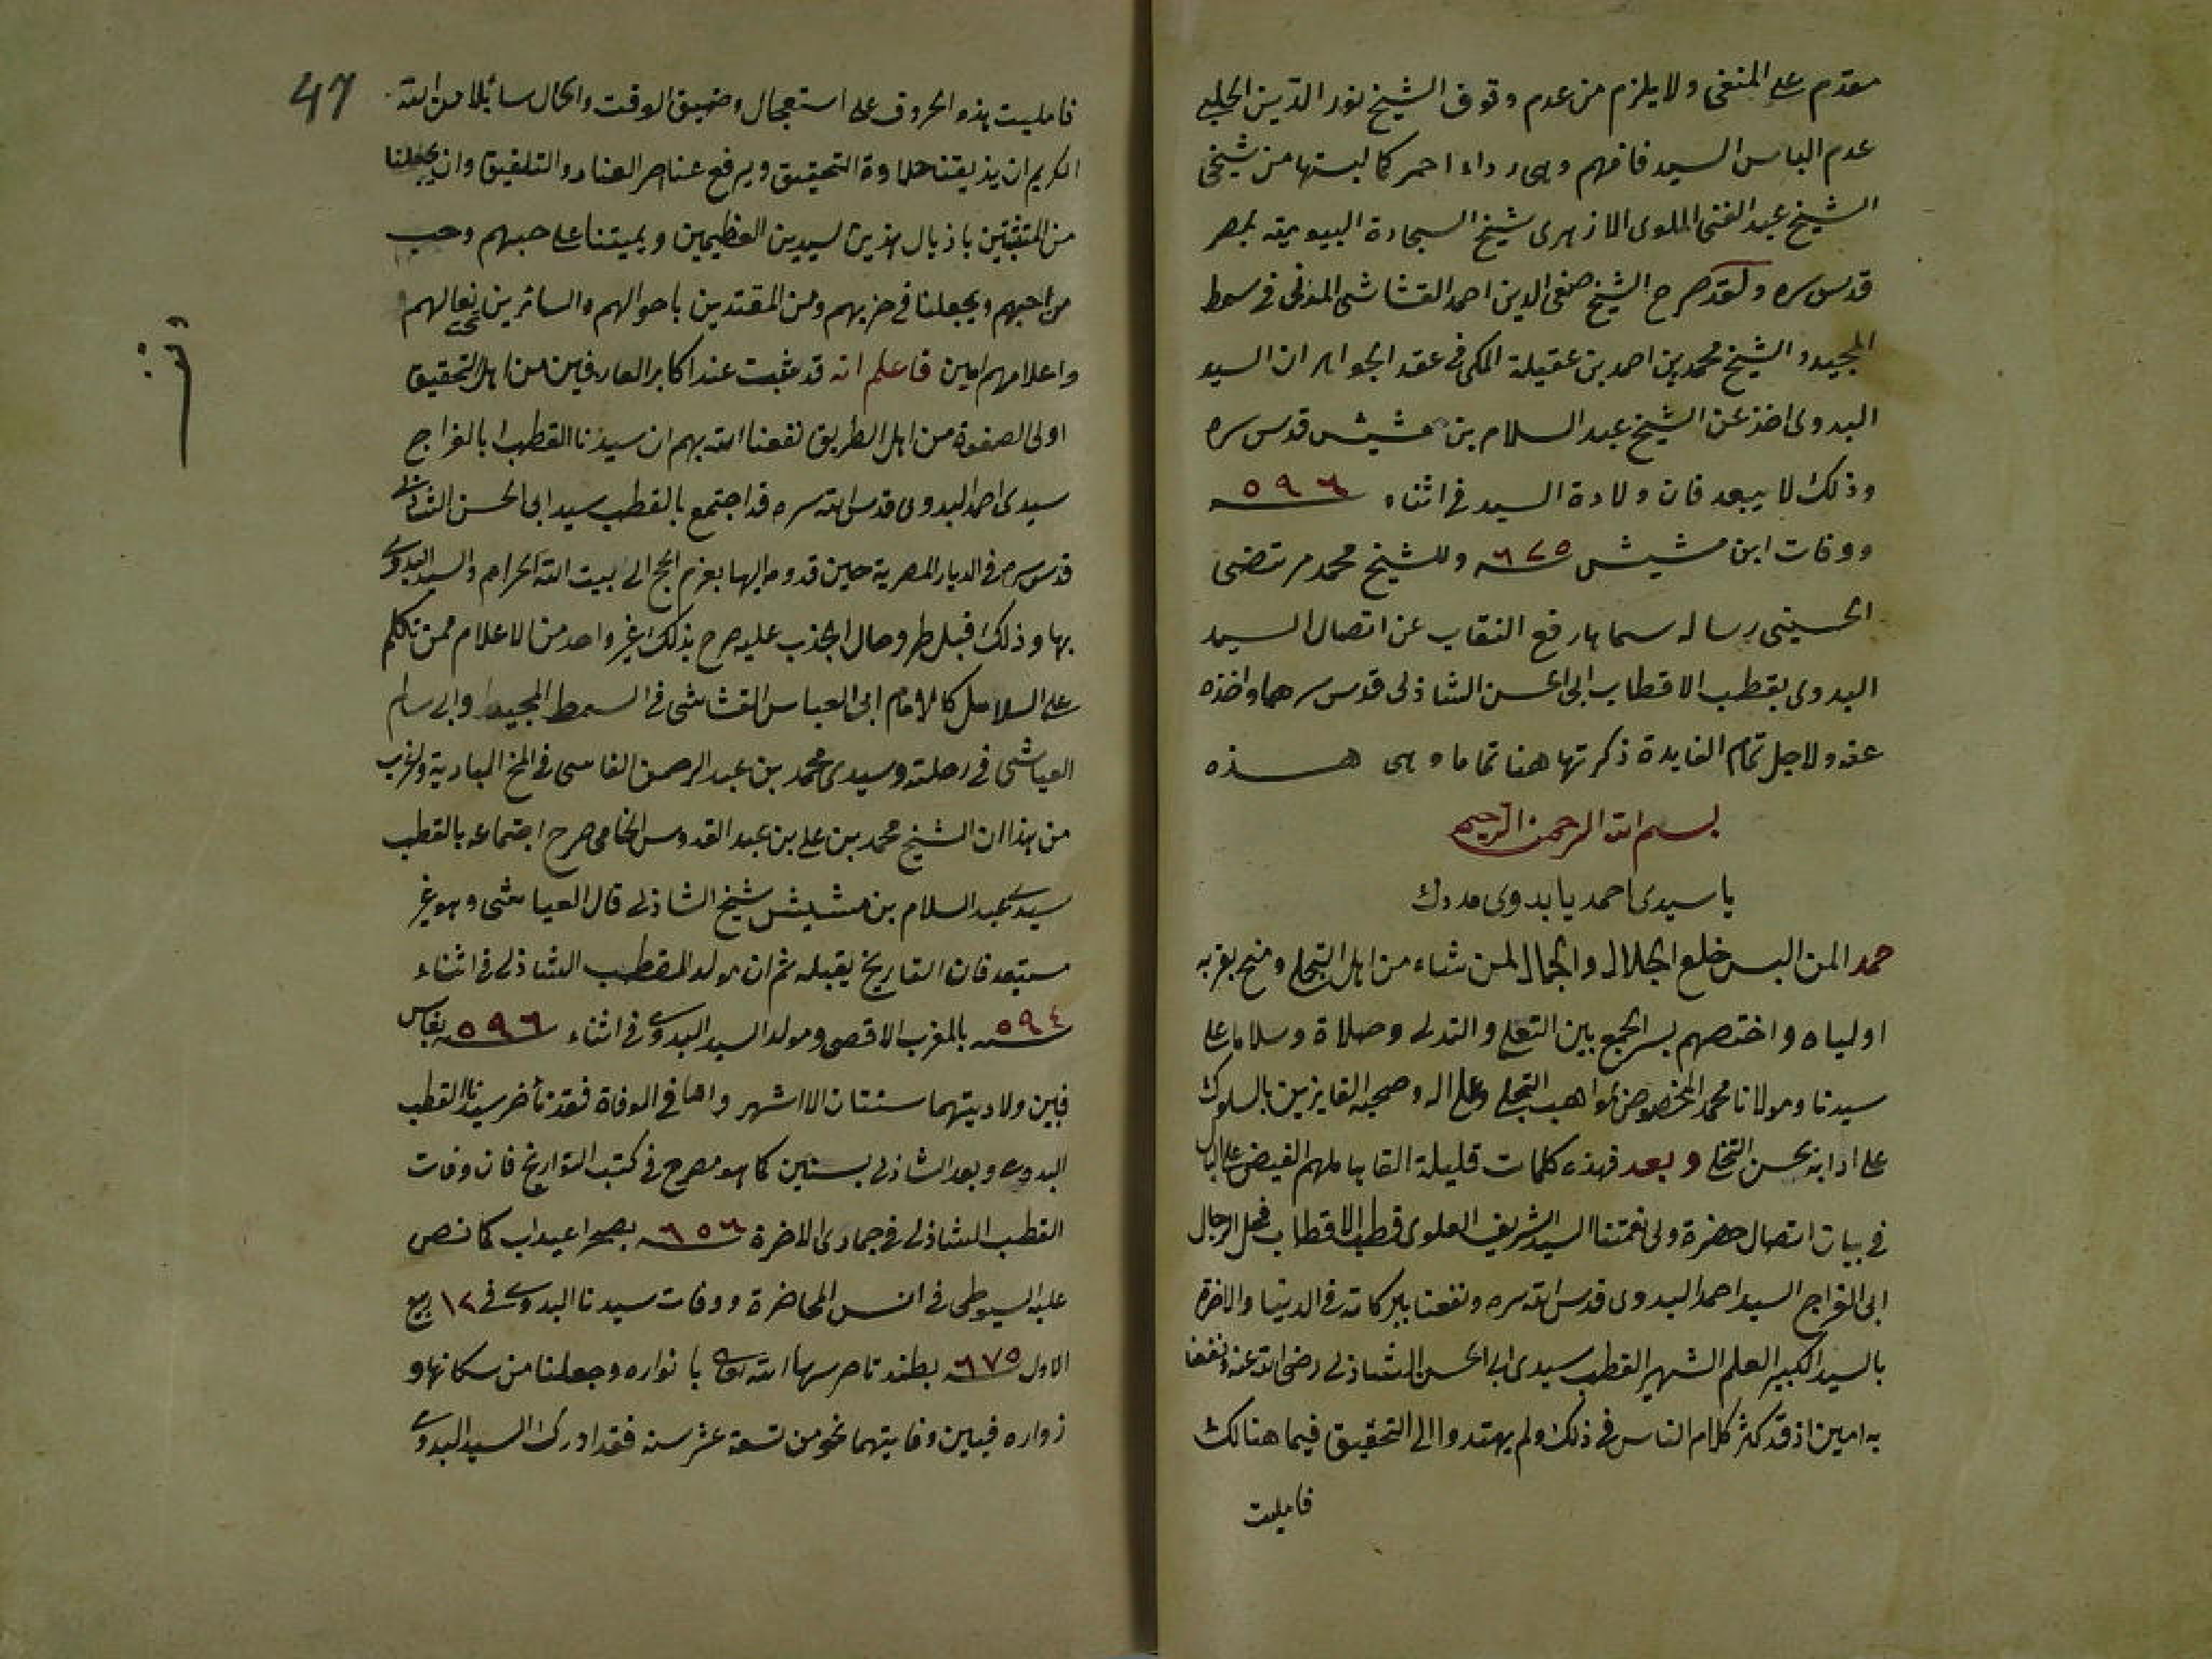 مقدم على المنفى ولا يلزم من عدم وقوف الشيخ نور الدين الحلبى
عدم الباس السيد فافهم وهى رداء احمر كما لبستها من شيخى
الشيخ عبد الغنى الملوى الازهرى شيخ السجادة البيومية بمصر
قدس سره ولقد صرح الشيخ صفى الدين احمد القشاشى المدنى فى سمط
المجيد والشيخ محمد بن احمد بن عقيلة المكى فى عقد الجواهر ان السيد
البدوى اخذ عن الشيخ عبد السلام بن مشيش قدس سره
وذلك لا يبعد فان ولادة السيد فى اثناء سنه ٥٩٦
ووفات ابن مشيش سنه ٦٢٥ وللشيخ محمد مرتضى
الحسينى رساله سماها رفع النقاب عن اتصال السيد
البدوى بقطب الاقطاب ابى الحسن الشاذلى قدس سرهما واخذه
عنه ولاجل تمام الفايدة ذكرتها هنا تماما وهى هذه
بسم الله الرحمن الرحيم
يا سيدى احمد يا بدوى مددك
حمدا لمن البس خلع الجلال والجمال لمن شاء من اهل التجلى ومنح بقربه
اولياه واختصهم بسر الجمع بين التعلى والتدلى وصلاة وسلاما على
سيدنا ومولانا محمد المخصوص بمواهب التجلى وعلى اله وصحبه الفايزين بالسلوك
على ادابه بحسن التخلى وبعد فهذه كلمات قليلة القاها ملهم الفيض على البال
فى بيان اتصال حضرة ولى نعمتنا السيد الشريف العلوى قطب الاقطاب فحل الرجال
ابى الفراج السيد احمد البدوى قدس الله سره ونفعنا ببركاته فى الدنيا والاخرة
بالسيد الكبير العلم الشهير القطب سيدى ابى الحسن الشاذلى رضى الله عنه ونفعنا
به امين اذ قد كثر كلام الناس فى ذلك ولم يهتدوا الى التحقيق فيما هنالك
فامليت
47
فامليت هذه الحروف على استعجال وضيق الوقت والحال سائلا من الله
الكريم ان يذيقنا حلاوة التحقيق ويرفع عناصر العناد والتلفيق وان يجعلنا
من المتشبثين باذيال هذين السيدين العظيمين ويميتنا على حبهم وحب
من احبهم ويجعلنا فى حزبهم ومن المقتدين باحوالهم والسائرين تحت نعالهم
واعلامهم امين فاعلم انه قد ثبت عند اكابر العارفين من اهل التحقيق
اولى الصفوة من اهل الطريق نفعنا الله بهم ان سيدنا القطب ابا الفراج
سيدى احمد البدوى قدس الله سره قد اجتمع بالقطب سيد ابى الحسن الشاذلى
قدس سره فى الديار المصرية حين قدومه اليها بعزم الحج الى بيت الله الحرام والسيد البدوى
بها وذلك قبل طروحال الجذب عليه صرح بذلك غير واحد من الاعلام ممن تكلم
على السلاسل كالامام ابى العباس القشاشى فى السمط المجيد وابى سالم
العياشى فى رحلته وسيدى محمد بن عبد الرحمن الفاسى فى المنح البادية واغرب
من هذا ان الشيخ محمد بن على بن عبد القدوس الخامى صرح اجتماعه بالقطب
سيدى عبد السلام بن مشيش شيخ الشاذلى قال العياشى وهو غير
مستبعد فان التاريخ يقبله ثم ان مولد القطب الشاذلى فى اثناء
سنه ٥٩٤ بالمغرب الاقصى ومولد السيد البدوى فى اثناء سنه ٥٩٦ بفاس
فبين ولاديتهما سنتان الا اشهر واما فى الوفاة فقد تأخر سيدنا القطب
البدوى وبعد الشاذلى بسنين كما هو مصرح فى كتب التواريخ فان وفات
القطب الشاذلى فى جمادى الاخرة سنه ٦٥٦ بصحراء عيداب كما نص
عليه السيوطى فى انس المحاضرة ووفات سيدنا البدوى فى ١٢ ربيع
الاول سنه ٦٧٥ بطندتا حرسها الله تعالى بانواره وجعلنا من سكانها و
زواره فبين وفايتهما نحو من تسعة عشر سنه فقد ادرك السيد البدوى